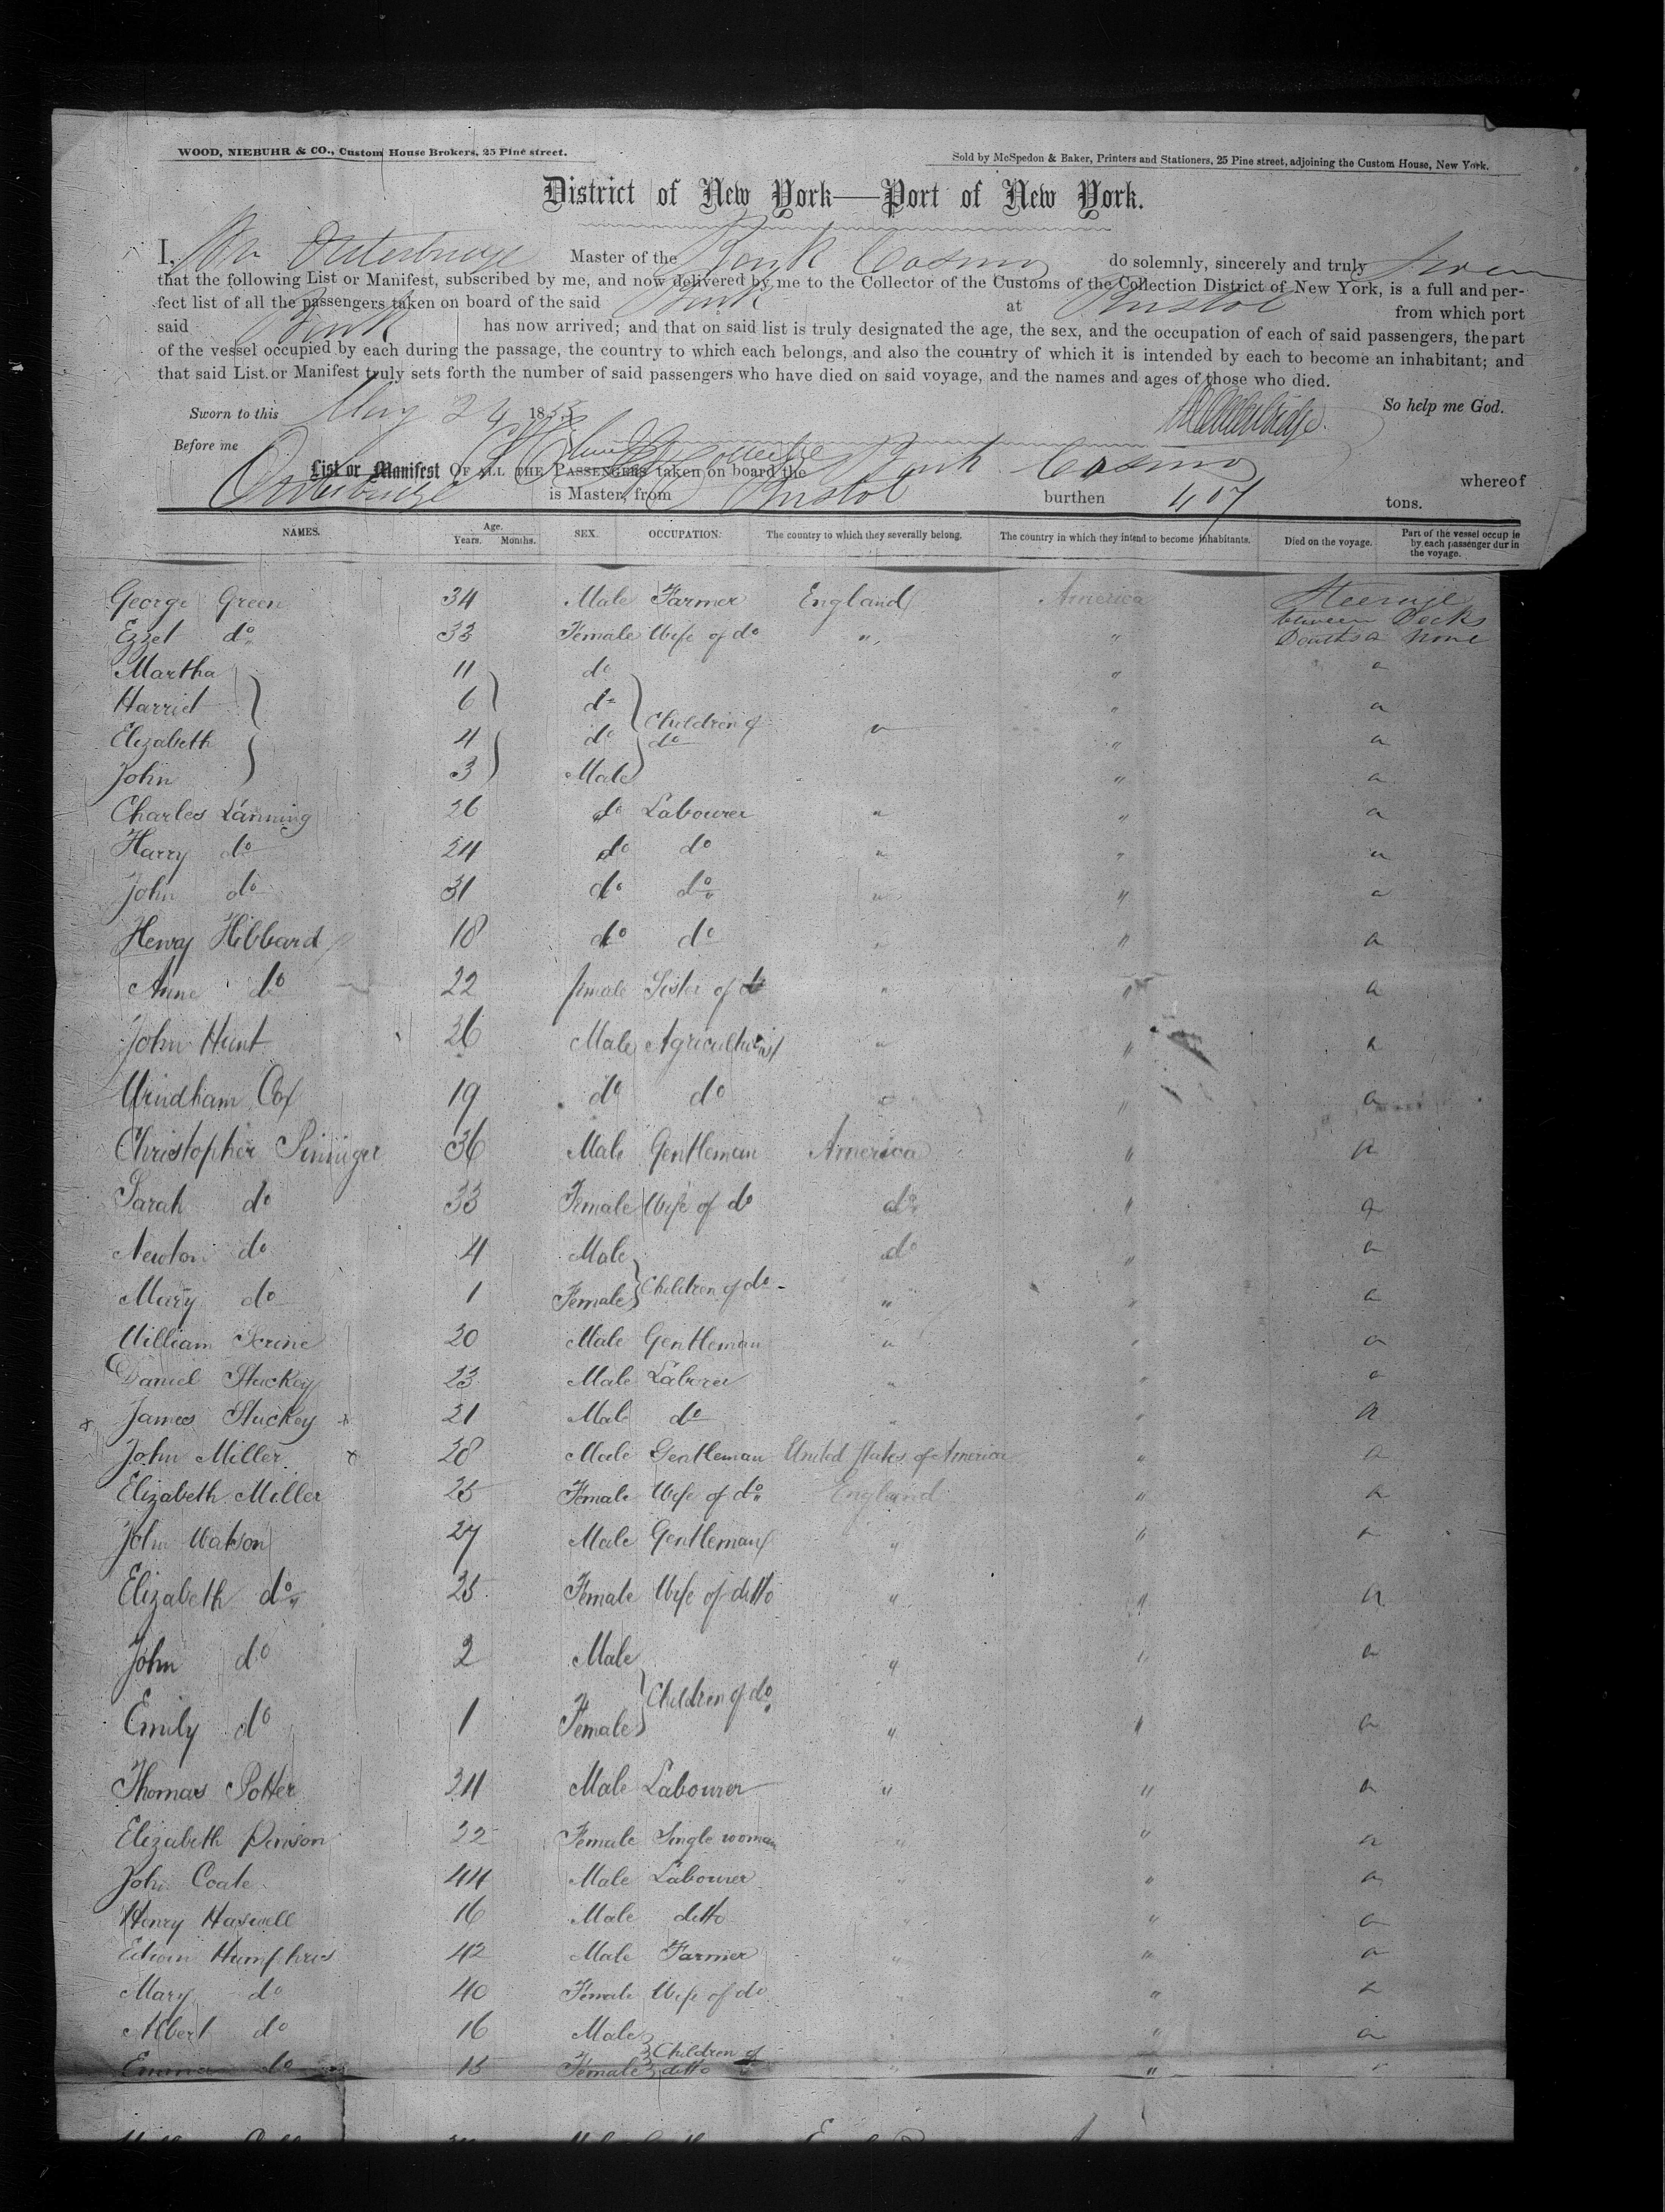 WOOD, NIEBUHR & CO., Custom House Brokers, 25 Pine street.
Sold by McSpedon & Baker, Printers and Stationers, 25 Pine street, adjoining the Custom House, New York.
District of New York—Port of New York.
I, Wm Outerbridge Master of the Bark Cosmo do solemnly, sincerely and truly swear
that the following List or Manifest, subscribed by me, and now delivered by me to the Collector of the Customs of the Collection District of New York, is a full and per-
fect list of all the passengers taken on board of the said Bark at Bristol from which port
said Bark has now arrived; and that on said list is truly designated the age, the sex, and the occupation of each of said passengers, the part
of the vessel occupied by each during the passage, the country to which each belongs, and also the country of which it is intended by each to become an inhabitant; and
that said List or Manifest truly sets forth the number of said passengers who have died on said voyage, and the names and ages of those who died.
Sworn to this May 24 1853 So help me God.
Before me
List or Manifest OF ALL THE PASSENGERS taken on board the Bark Cosmo whereof
Outerbridge is Master, from Bristol burthen 407 tons.
NAMES. Age. Years. Months. SEX. OCCUPATION. The country to which they severally belong. The country in which they intend to become inhabitants. Died on the voyage. Part of the vessel occup by each passenger dur the voyage.
George Green 34 Male Farmer England America Steerage
between Decks
Ezzet do 33 Female Wife of do " " Deaths a None
Martha 11 do " a
Harriet 6 do " a
Elizabeth 4 do Children of do " " a
John 3 Male " a
Charles Lanning 26 do Labourer " " a
Harry do 24 do do " " a
John do 31 do do " " a
Henry Hibbard 18 do do " " a
Anne do 22 female Sister of do " " a
John Hunt 36 Male Agriculturist " " a
Windham Cox 19 do do " " a
Christopher 36 Male Gentleman America " a
Sarah do 33 Female Wife of do do " a
Newton do 4 Male do " a
Mary do 1 Female Children of do " " a
William Scrine 20 Male Gentleman " " a
Daniel Stuckey 23 Male Laborer " " a
x James Stuckey x 21 Male do " " a
John Miller x 28 Male Gentleman United States of America " a
Elizabeth Miller 25 Female Wife of do England " a
John Watson 27 Male Gentleman " " a
Elizabeth do 25 Female Wife of ditto " " a
John do 2 Male " " a
Emily do 1 Female Children of do " " a
Thomas Potter 24 Male Labourer " " a
Elizabeth Penson 22 Female Single woman " " a
John Coate 44 Male Labourer " " a
Henry Haswell 16 Male ditto " " a
Edwin Humphries 42 Male Farmer " " a
Mary do 40 Female Wife of do " " a
Albert do 16 Male " a
Emma do 15 Female Children of ditto " "